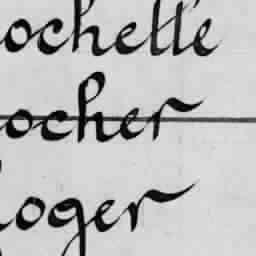 ochette
ocher
oger